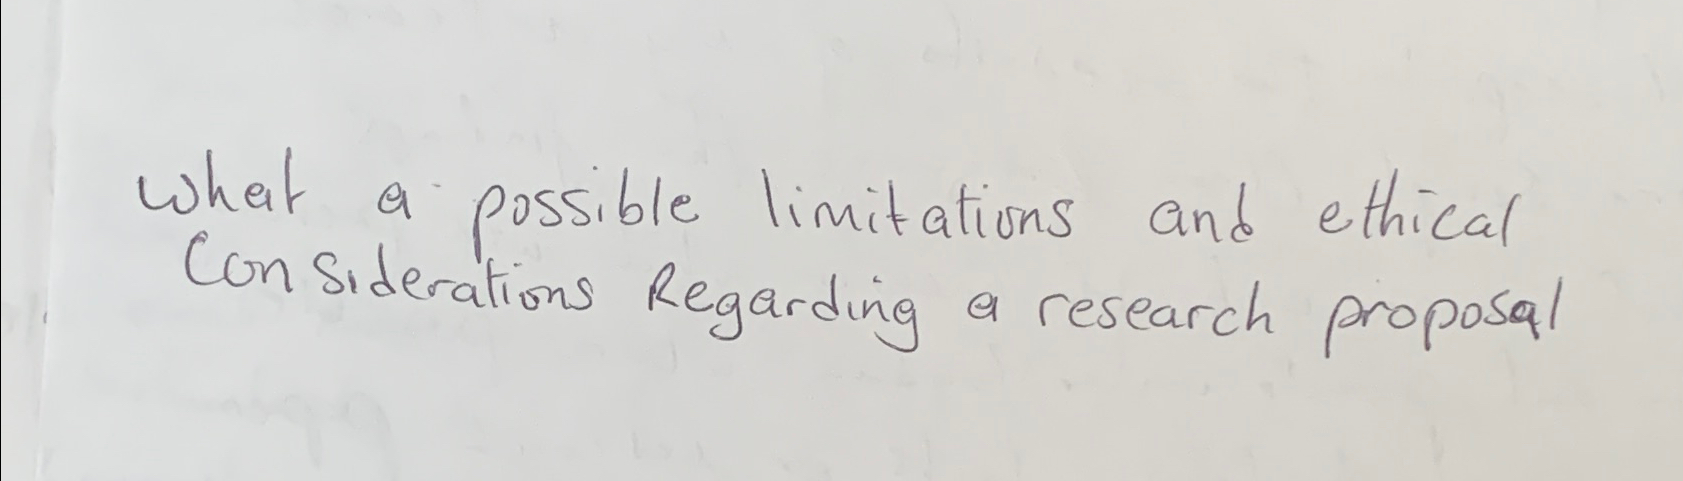 What a possible limitations and ethical
Considerations Regarding a research proposal